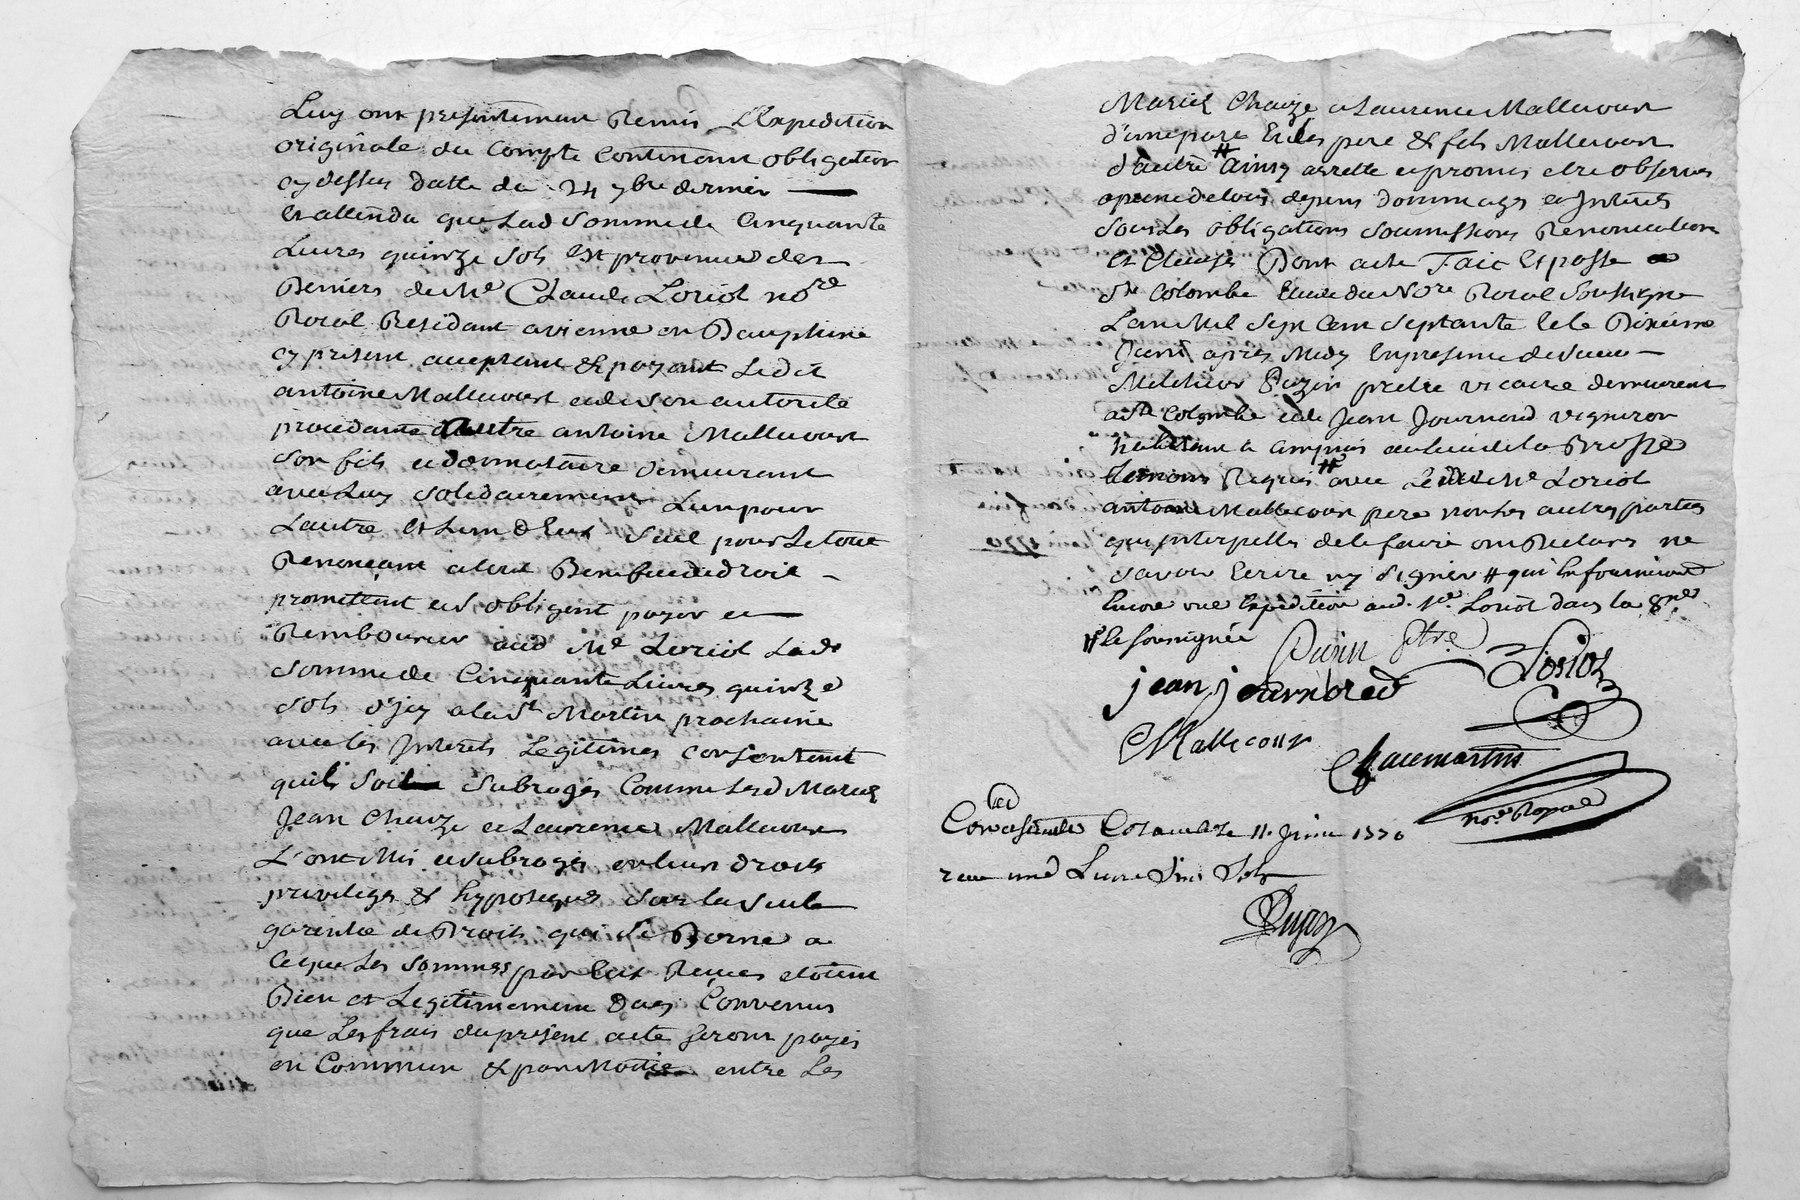 Luy ont presentement Remis L'Expedition
originale du Compte Contenant obligation
cy dessus datte du 24 7bre dernier
Et attendu que Lad Somme de Cinquante
Livres quinze Sols Est provenue des
Deniers de Me Claude Loriot nore
Roial Residant a vienne en Dauphiné
cy present acceptant & payant Ledit
antoine Mallecourt et de son autorité
procedante autre antoine Mallecourt
son fils et donnataire demeurant
avec Luy solidairement L'un pour
L'autre et L'un d'Eux seul pour Le tout
Renonçant a tout Benefice de droit
promettent et s'obligent payer et
Rembourser aud Me Loriot Lade
somme de Cinquante Livres quinze
sols d'jcy a la St Martin prochaine
avec les Interets Legitimes consentent
qu'il soit subrogés Comme Lesd Mariés
Jean Chaize et Laurence Mallecourt
L'ont Mis et subrogés en leur droits
privileges & hypoteques sous la seule
garentie de Droit qui se Borne a
ce que Les sommes par Eux Reçues etoient
Bien et Legitimement Dues Convenus
que Les frais du present acte seront payés
en Commun & par Moitié entre Les
Mariés Chaize et Laurence Mallecourt
d'une part Et Les pere & fils Mallecourt
d'autre # ainsy arretté et promis etre observé
a peine de tous depens dommages et Interets
sous Les obligations soumissions Renonciations
et Clauses Dont acte Fait Et passé a
Ste Colombe Etude du Nore Roial Soussigné
L'an Mil sept Cent septante Et le Dixieme
Juin après Midy En presence de sieur
Melchior Puzin pretre vicaire demeurent
a Ste Colombe et de Jean Journoud vigneron
habitant a ampuis au lieu de la Brosse
temoins Requis # avec Ledit Me Loriot
antoine Mallecourt pere non Les autres parties
qui Interpellés de le faire ont Declaré ne
savoir Ecrire ny signer # qui En fournirons
Encore une Expedition aud. Me Loriot dans la 8ne
# le soussignée
Puzin ptre
Loriot
jean journoud
Mallecourt
Chacmartin
nore Royal
Colombe 11 Juin 1770
recu une Livre Six Sols